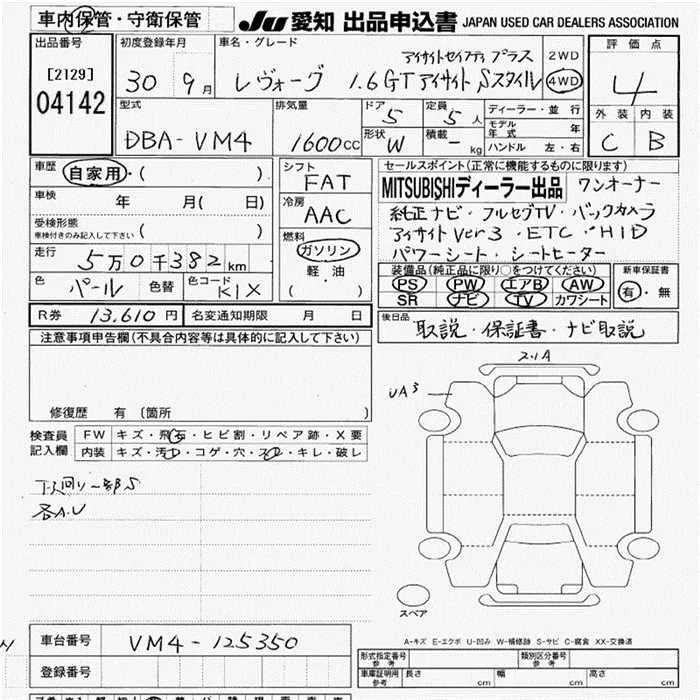 車内保管・守衛保管 JU 愛知 出品申込書 JAPAN USED CAR DEALERS ASSOCIATION
出品番号 初度登録年月 車名・グレード 評価点
[2129] 30年9月 レヴォーグ 1.6GTアイサイトSスタイル
アイサイトセイフティプラス 2WD
04142 4WD 4
型式 排気量 ドア 5 定員 5人 ディーラー・並行 外装 内装
DBA-VM4 1600cc 形状 W 積載 - kg モデル年式 年 C B
ハンドル 左・右
車歴 自家用・( ) シフト FAT セールスポイント(正常に機能するものに限ります)
車検 年 月( 日) 冷房 AAC MITSUBISHIディーラー出品 ワンオーナー
純正ナビ・フルセグTV・バックカメラ
受検形態 車検付きのみ記入して下さい ( ) 燃料 アイサイトver3・ETC・HID
走行 5万0千382km ガソリン パワーシート・シートヒーター
軽・油 装備品(純正品に限り○をつけてください) 新車保証書
色 パール 色替 色コード K1X ( ) PS PW エアB AW 有・無
SR ナビ TV カワシート
R券 13,610円 名変通知期限 月 日 後日品 取説・保証書・ナビ取説
注意事項申告欄(不具合内容等は具体的に記入して下さい)
2.1A
UA3
修復歴 有 (箇所 )
検査員記入欄 FW キズ・飛石・ヒビ割・リペア跡・X要
内装 キズ・汚・コゲ・穴・スレ・キレ・破レ
下回り一部S
各A.U
スペア
車台番号 VM4-125350 A-キズ E-エクボ U-凹み W-補修跡 S-サビ C-腐食 XX-交換済
登録番号 形式指定番号 参考 類別区分番号 参考
車庫証明用 参考 長さ cm 幅 cm 高さ cm